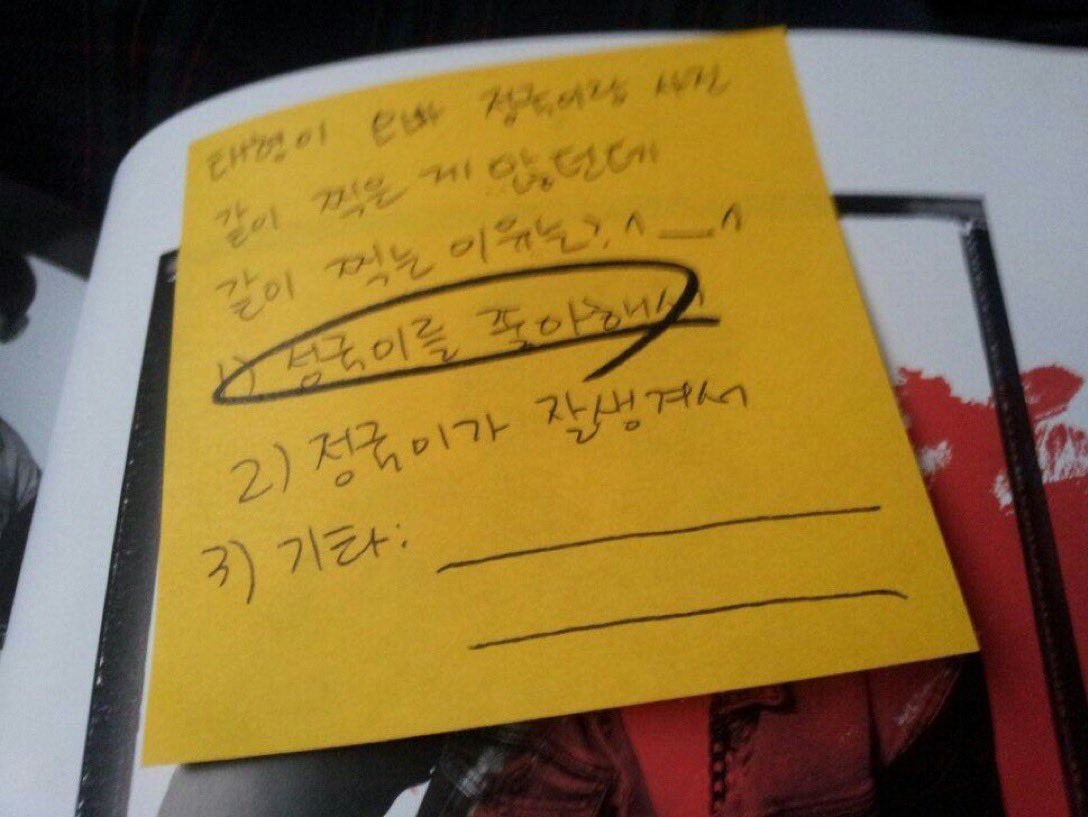 태형이 오빠 정국이랑 사진
같이 찍은 게 많던데
같이 찍는 이유는? ^__^
1) 정국이를 좋아해서
2) 정국이가 잘생겨서
3) 기타: